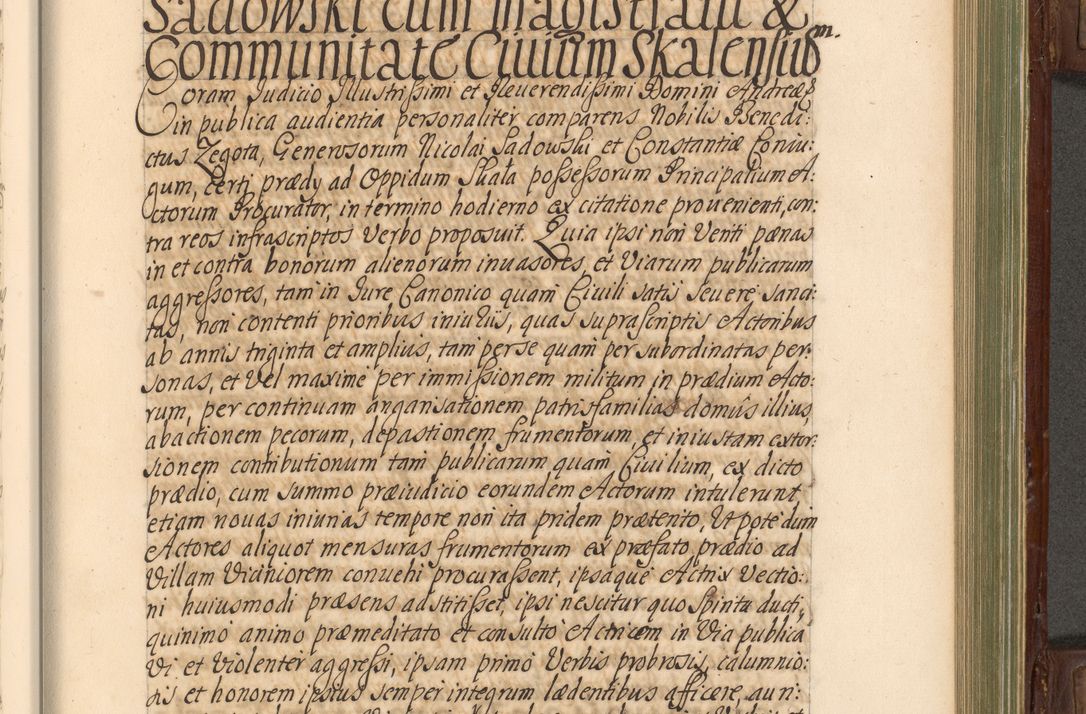 Sadowski cum magistratu &
Communitate Civium Skalensium.
Coram Judicio Illustrissimi et Reverendissimi Domini Andreæ
in publica audientia personaliter comparens Nobilis Benedi:
ctus Zegota, Generosorum Nicolai Sadowski et Constantiæ Coniu:
gum, certi prædy ad Oppidum Skała possessorum Principalium A:
ctorum Procurator, in termino hodierno ex citatione provenienti, con:
tra reos infrascriptos Verbo proposuit. Quia ipsi non Venti pænas
in et contra bonorum alienorum invasores, et Viarum publicarum
aggressores, tam in Jure Canonico quam Civili satis severe sanci:
tas, non contenti prioribus iniurÿs, quas suprascriptis Actoribus
ab annis triginta et amplius, tam per se quam per subordinatas per:
sonas, et Vel maxime per immissionem militum in prædium Acto:
rum, per continuam angansationem patrisfamilias domûs illius,
abactionem pecorum, depastionem frumentorum, et iniustam extor:
sionem contributionum tam publicarum quam Civilium, ex dicto
prædio, cum summo præiudicio eorundem Actorum intulerunt,
etiam novas iniurias tempore non ita pridem prætento, Ut pote dum
Actores aliquot mensuras frumentorum ex præfato prædio ad
Villam Viciniorem convehi procurassent, ipsaque Actrix Vectio:
ni huiusmodi præsens adstitisset, ipsi nescitur quo Spiritu ducti,
quinimo animo præmeditato et consulto Actricem in Via publica
Vi et Violenter aggressi, ipsam primo Verbis probrosis, calumnio:
sis et honorem ipsius semper integrum lædentibus afficere, aun: